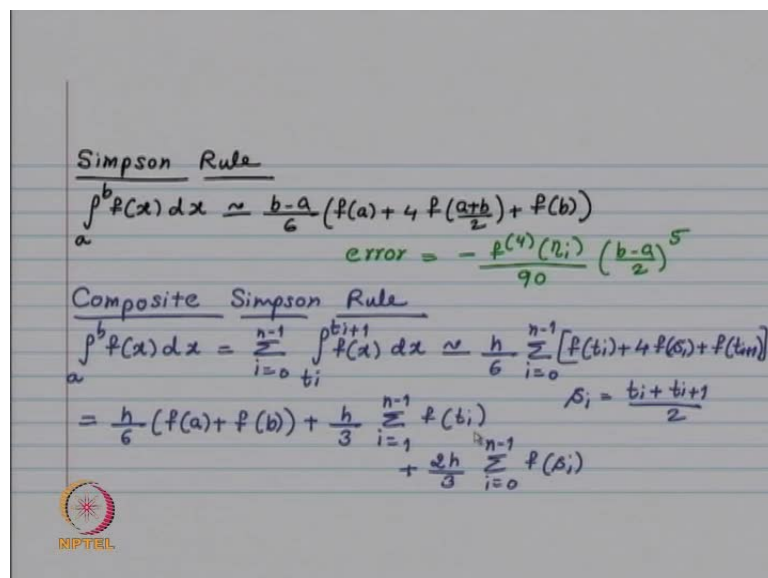 Simpson Rule
∫_a^b f(x) dx ≃ (b-a)/6 (f(a) + 4 f((a+b)/2) + f(b))
error = - f^(4)(η_i)/90 ((b-a)/2)^5
Composite Simpson Rule
∫_a^b f(x) dx = Σ_{i=0}^{n-1} ∫_{t_i}^{t_{i+1}} f(x) dx ≃ h/6 Σ_{i=0}^{n-1} [f(t_i) + 4 f(s_i) + f(t_{i+1})]
s_i = (t_i + t_{i+1})/2
= h/6 (f(a) + f(b)) + h/3 Σ_{i=1}^{n-1} f(t_i)
+ 2h/3 Σ_{i=0}^{n-1} f(s_i)
NPTEL